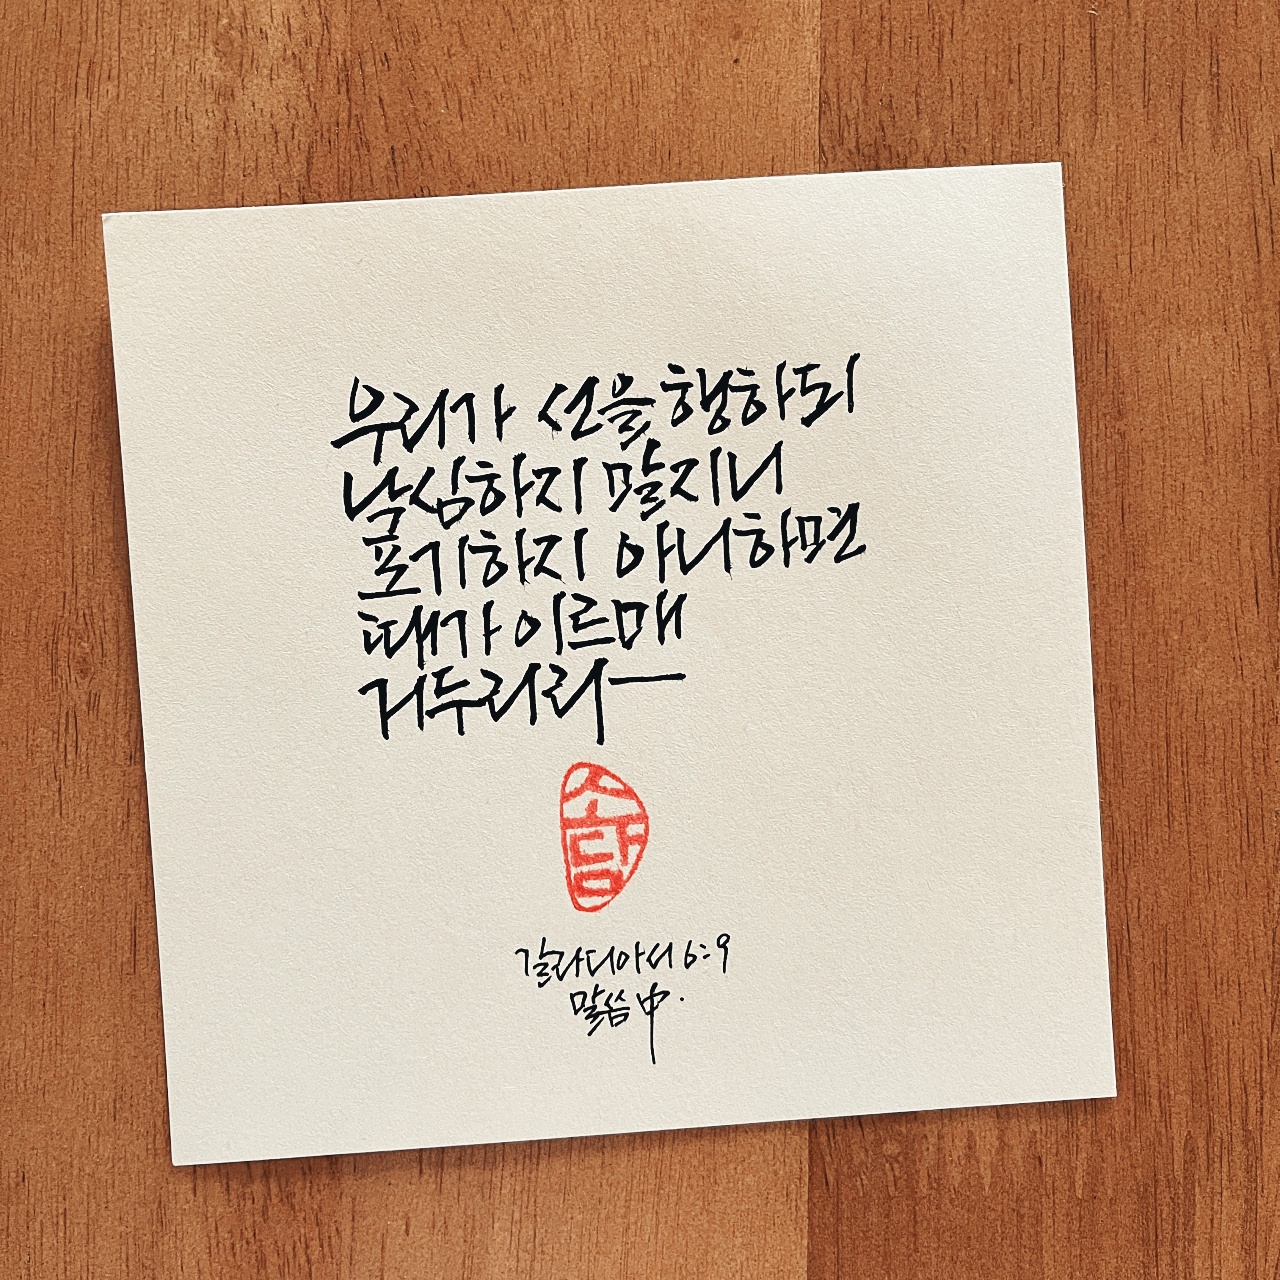 우리가 선을 행하되
낙심하지 말지니
포기하지 아니하면
때가 이르매
거두리라
소담
갈라디아서 6:9
말씀 中.